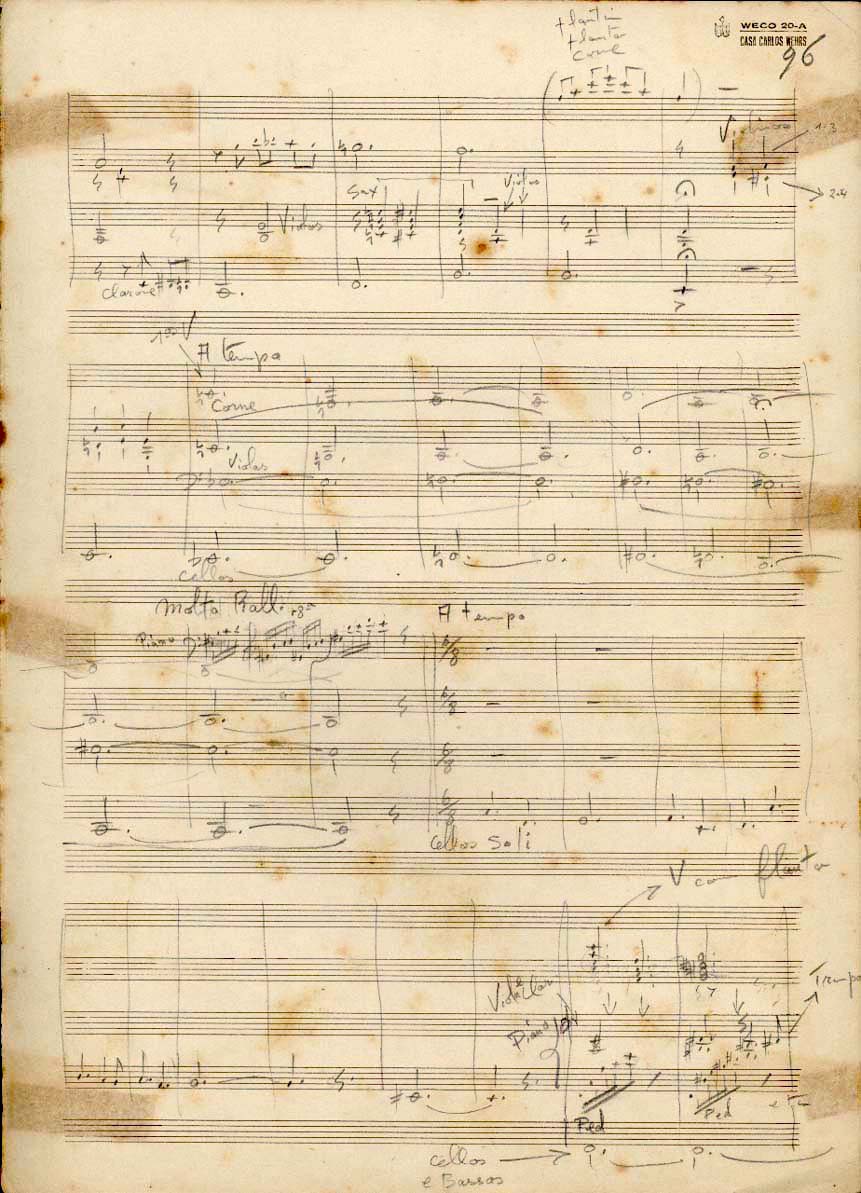 + flautin
+ flauta
corne
WECO 20-A
CASA CARLOS WEHRS
96
Violinos
1-3
2-4
Sax
Violas
Violas
Clarone
1os V
A tempo
Corne
Violas
Cellos
Molto Rall.
8a
A tempo
Piano
6/8
6/8
6/8
6/8
Cellos Soli
V com flauta
Viol e Clar
Piano
Trompa
Ped
Ped
etc
Cellos
e Bassos